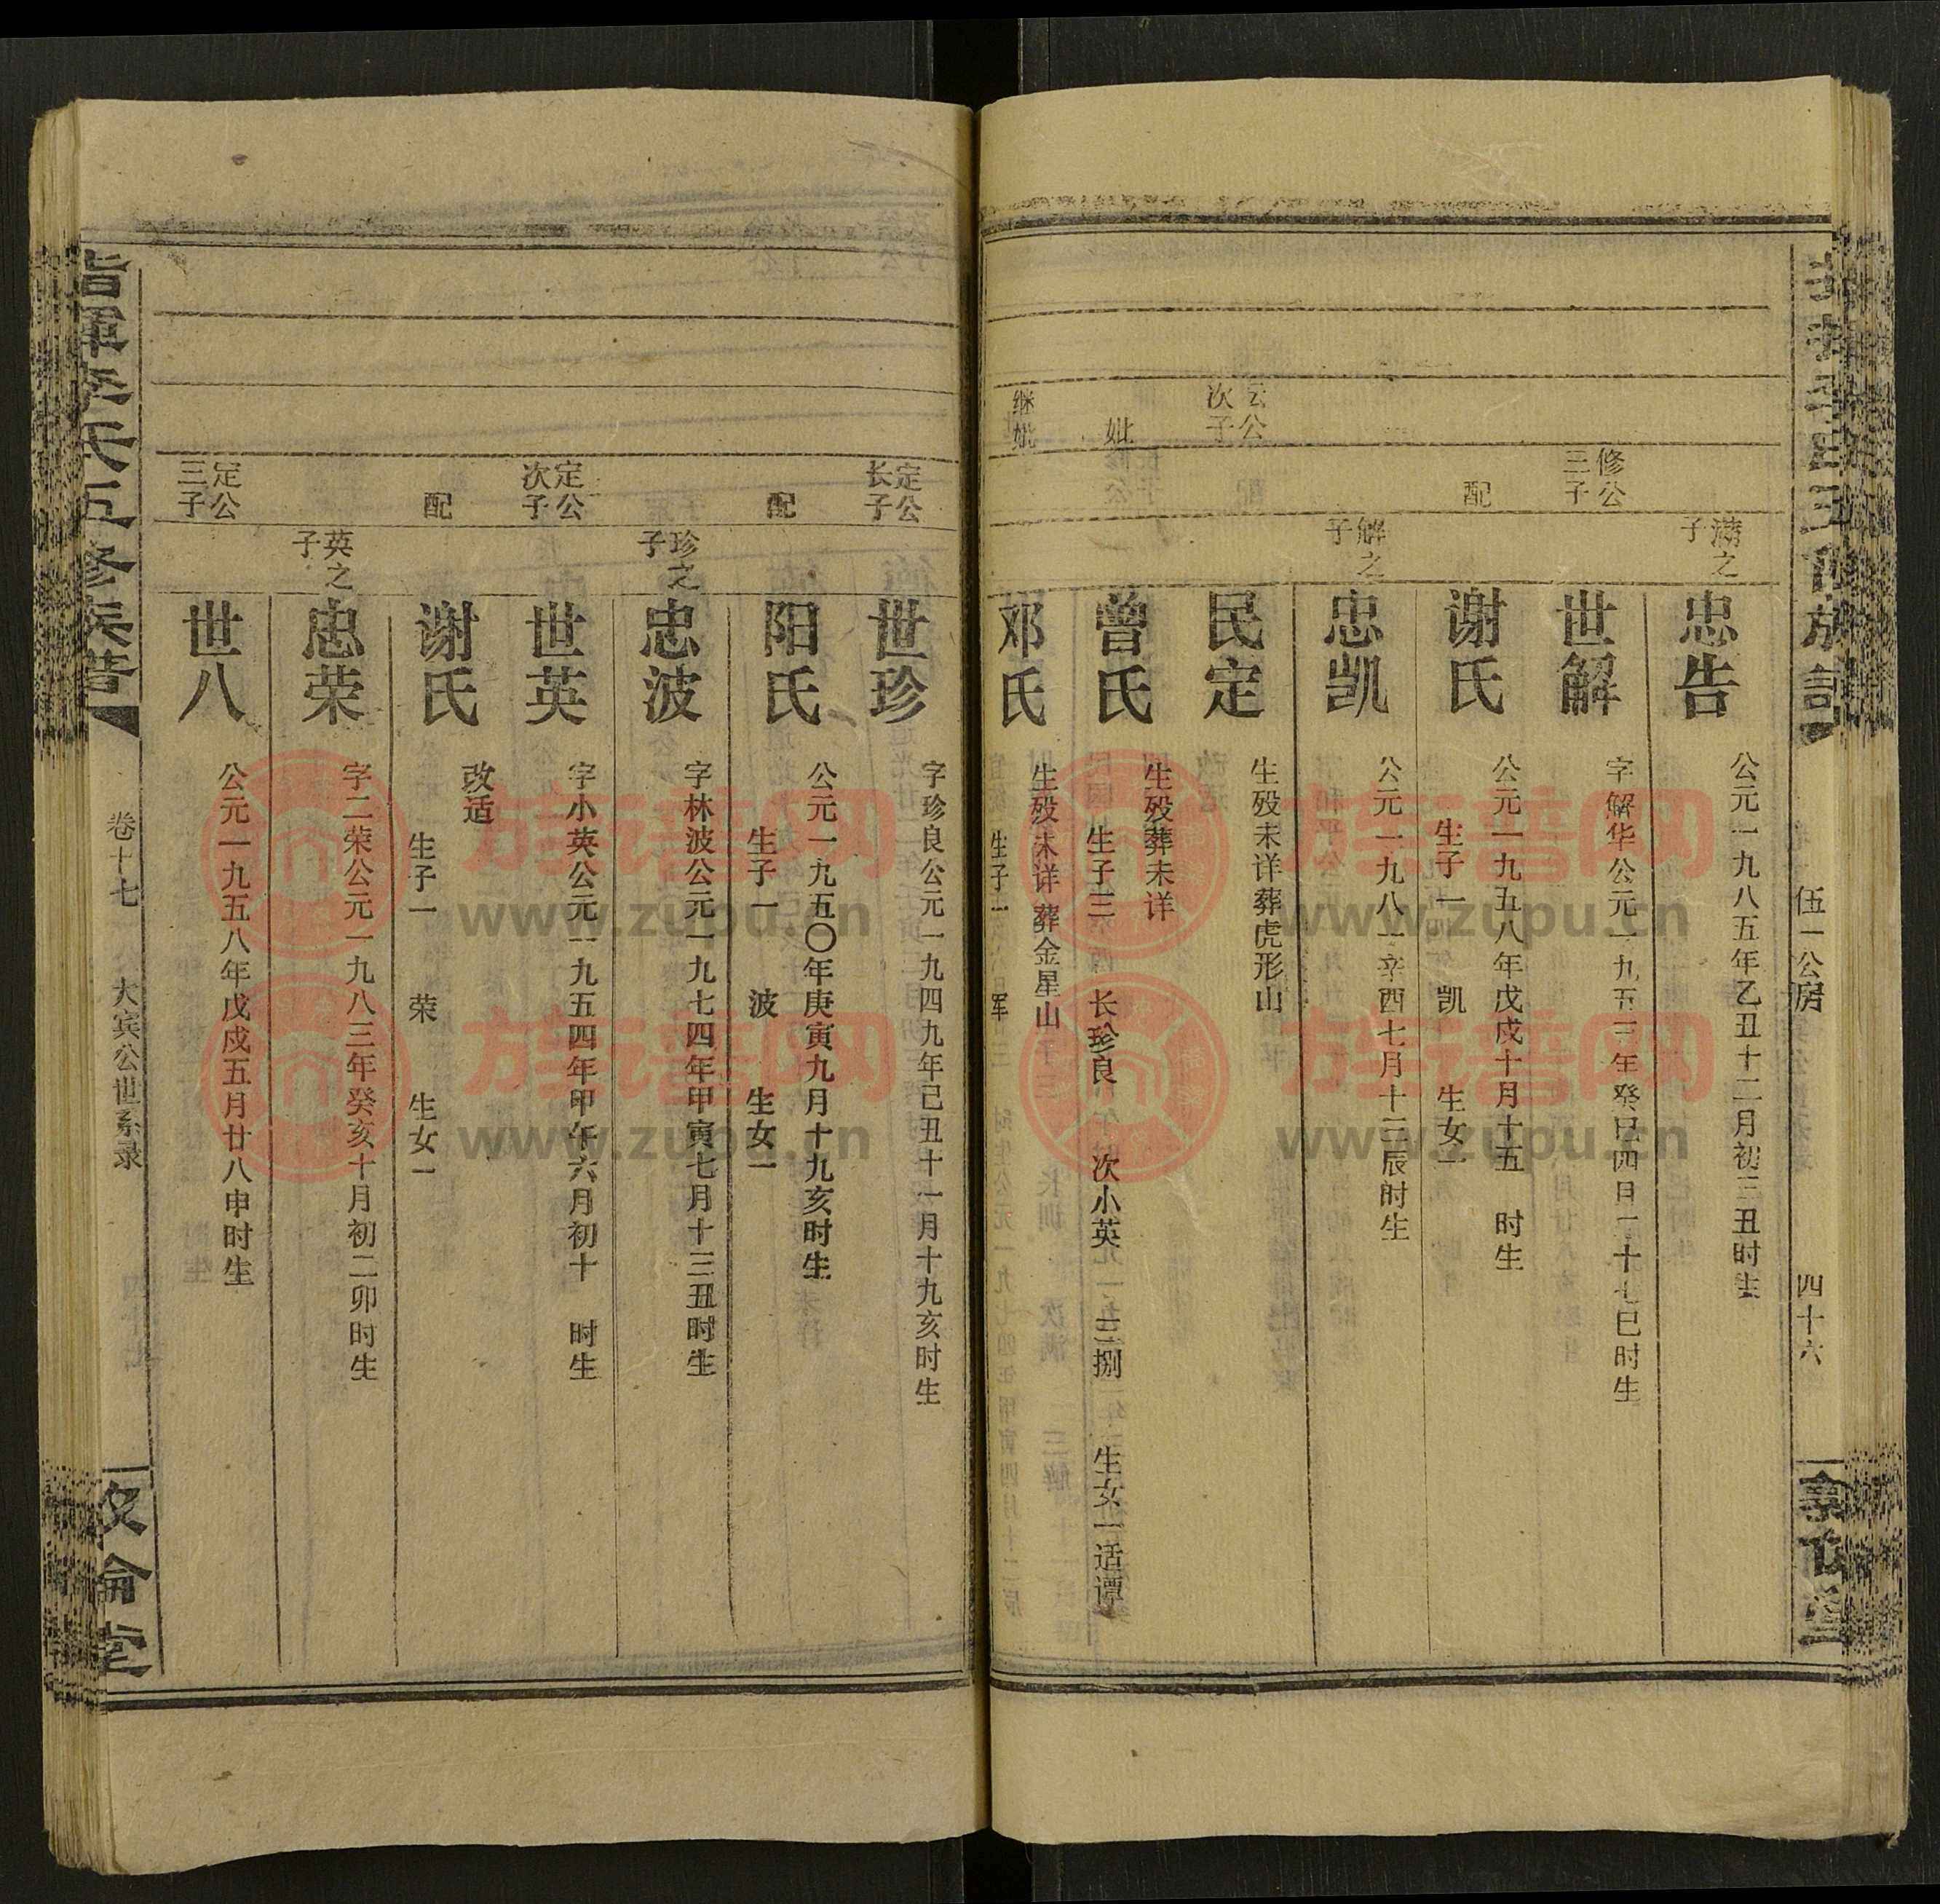 伍一公房
四十六
满之子
忠告
公元一九八五年乙丑十二月初三丑时生
修公三子
世解
字解华公元一九五三年癸巳四日二十七巳时生
配
谢氏
公元一九五八年戊戌十月十五 时生
生子一 凯 生女一
解之子
忠凯
公元一九八一辛酉七月十三辰时生
云公次子
民定
生殁未详葬虎形山
妣
曾氏
生殁葬未详
生子三 长珍良 次小英 三捌 生女一适谭
继妣
邓氏
生殁未详葬金星山
生子一 军
定公长子
世珍
字珍良公元一九四九年己丑十一月十九亥时生
配
阳氏
公元一九五〇年庚寅九月十九亥时生
生子一 波 生女一
珍之子
忠波
字林波公元一九七四年甲寅七月十三丑时生
定公次子
世英
字小英公元一九五四年甲午六月初十 时生
配
谢氏
改适
生子一 荣 生女一
英之子
忠荣
字二荣公元一九八三年癸亥十月初二卯时生
定公三子
世八
公元一九五八年戊戌五月廿八申时生
指挥李氏五修族谱
卷十七
大宾公世系录
敦伦堂
族谱网
www.zupu.cn
族谱网
www.zupu.cn
族谱网
www.zupu.cn
族谱网
www.zupu.cn